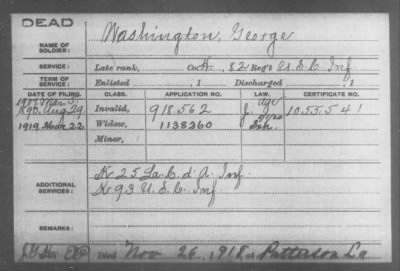 DEAD
NAME OF SOLDIER: Washington, George
SERVICE: Late rank, Co. H, 82 Reg't U.S.C. Inf
TERM OF SERVICE: Enlisted , 1 Discharged , 1
DATE OF FILING. CLASS. APPLICATION NO. LAW. CERTIFICATE NO.
1907 Mar 5, age
1890 Aug 29 Invalid, 918.562 J. 1055541
1919 Mar 22 Widow, 1138260
Minor,
ADDITIONAL SERVICES: K 25 La. C. d'A. Inf.
K 93 U.S.C. Inf
REMARKS:
Died Nov 26, 1918, at Patterson La